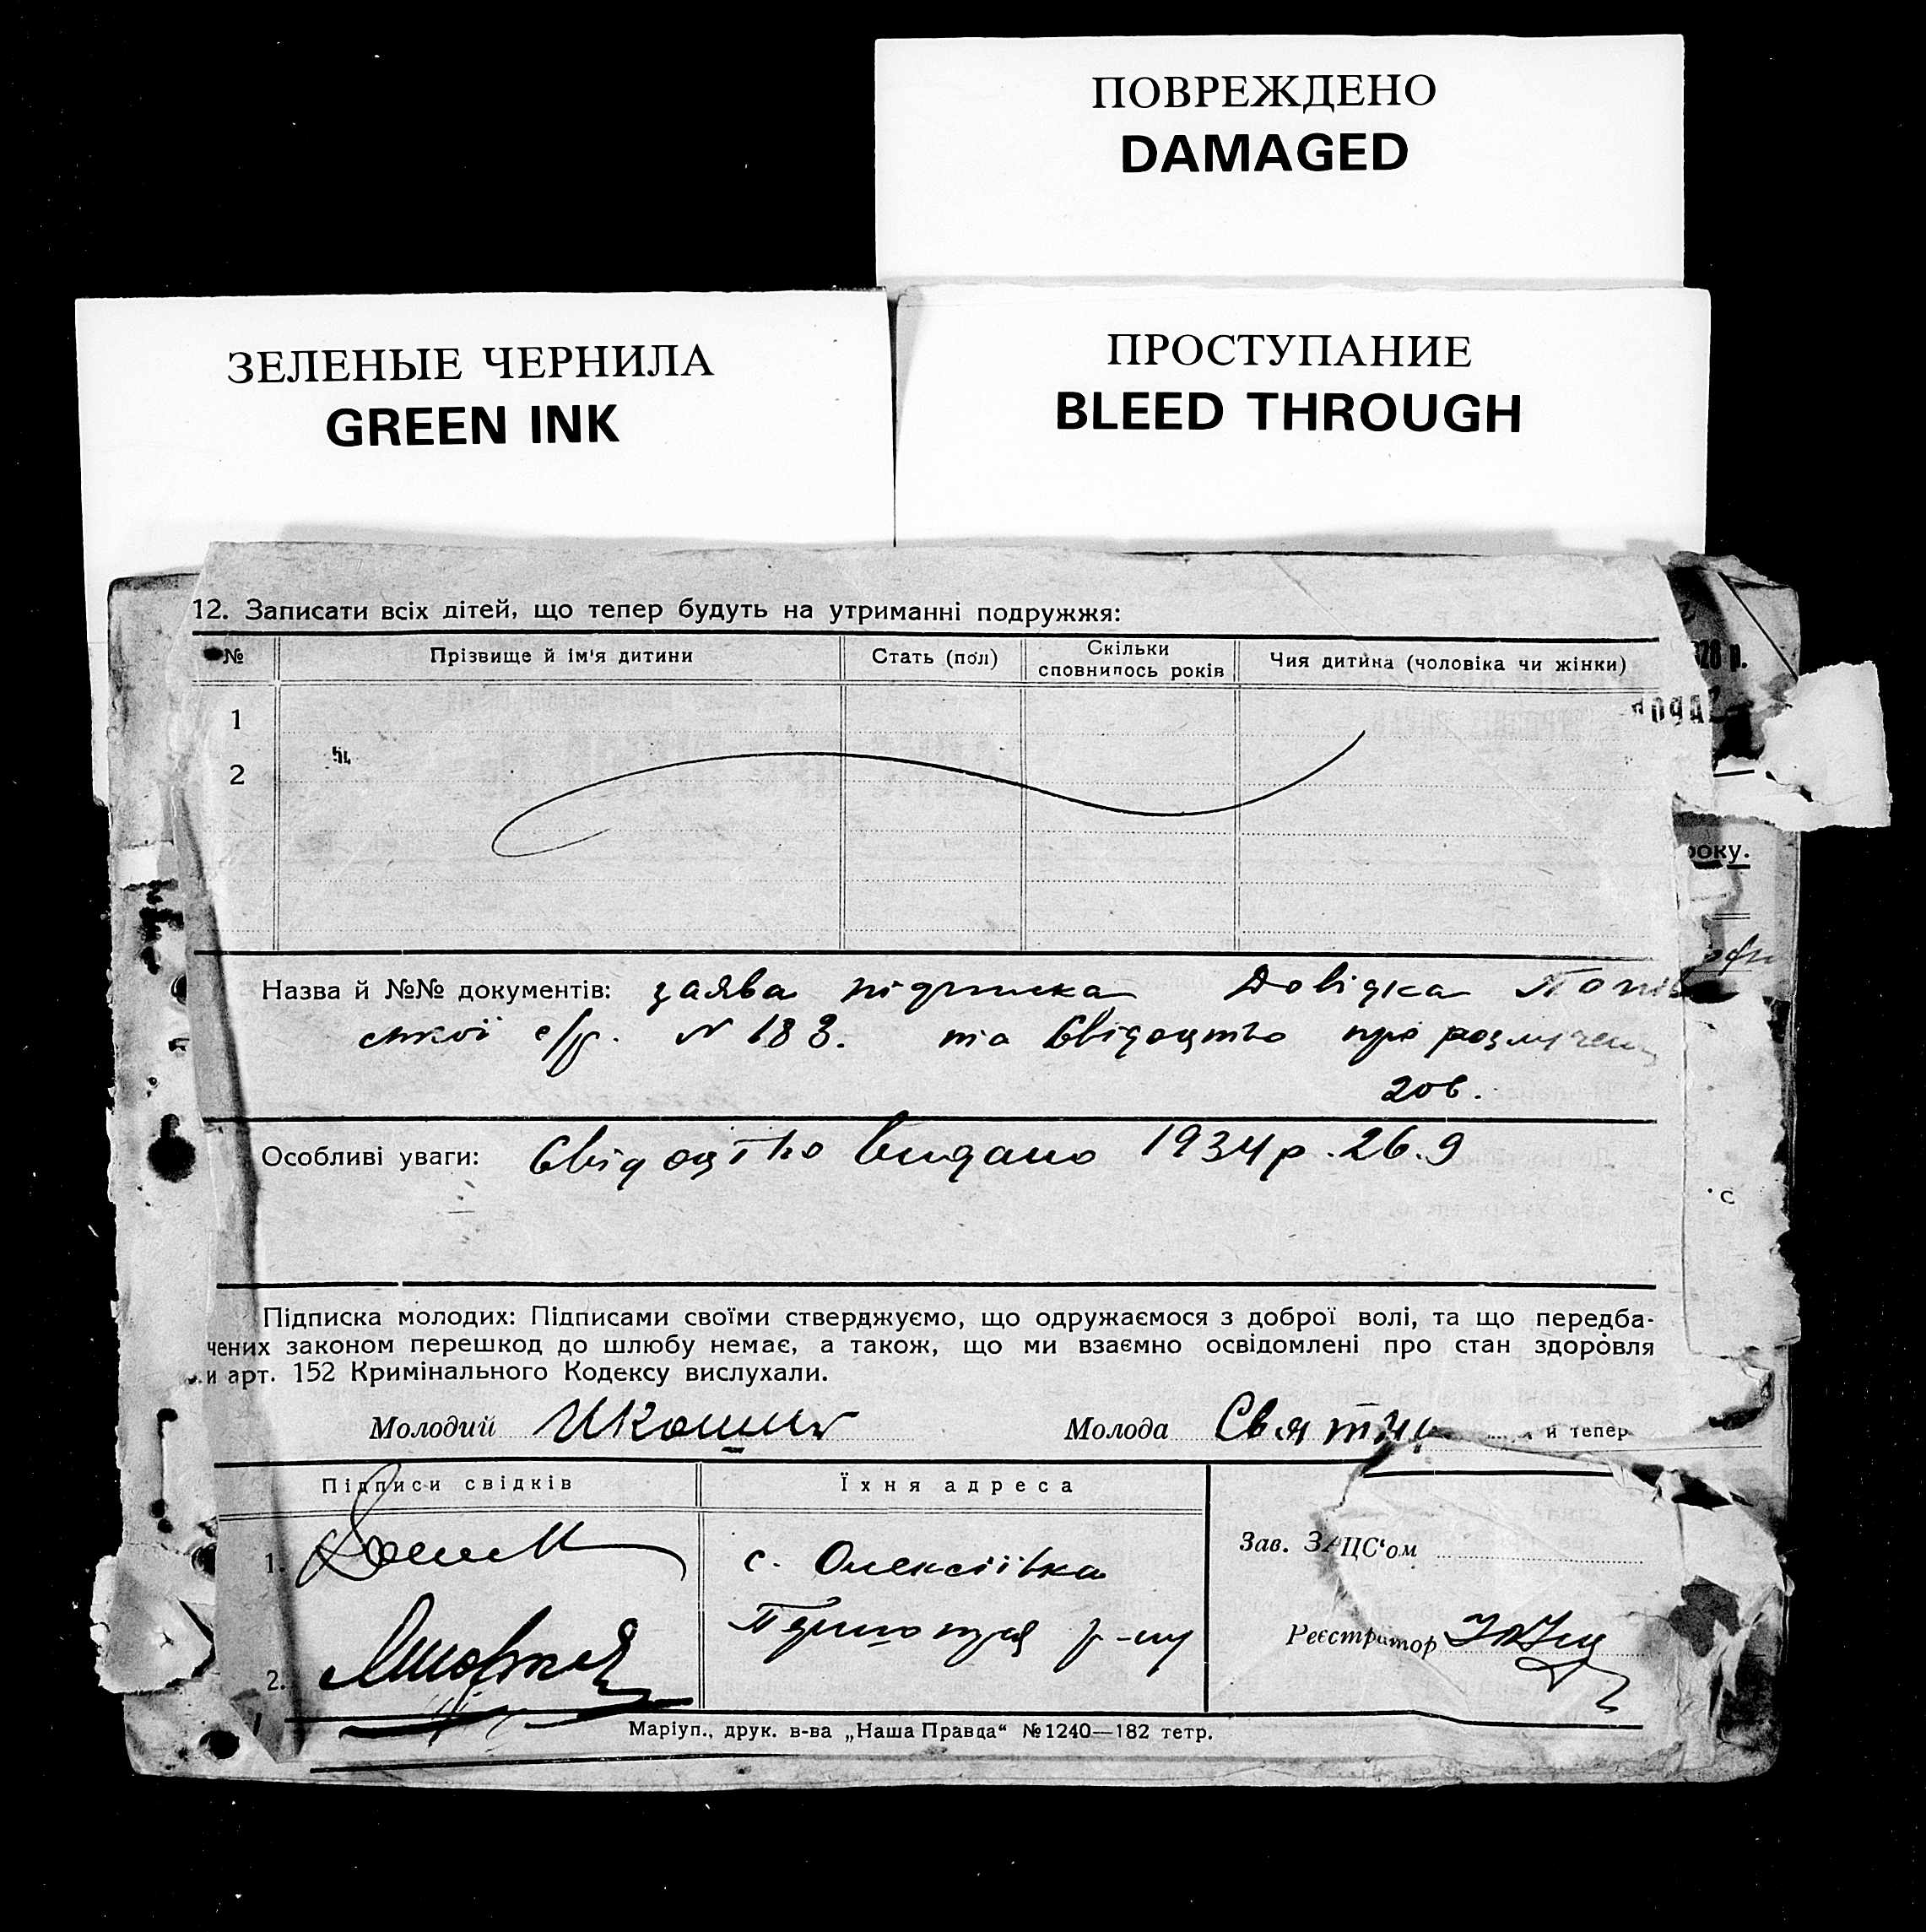 ПОВРЕЖДЕНО
DAMAGED
ЗЕЛЕНЫЕ ЧЕРНИЛА
GREEN INK
ПРОСТУПАНИЕ
BLEED THROUGH
12. Записати всіх дітей, що тепер будуть на утриманні подружжя:
№ Прізвище й ім'я дитини Стать (пол) Скільки сповнилось років Чия дитина (чоловіка чи жінки)
28 р.
1
2
року.
Назва й №№ документів: заява підписка Довідка
с/р. N 183. та Свідоцтво про
Особливі уваги: Свідоцтво видано 1934 р. 26.9
Підписка молодих: Підписами своїми стверджуємо, що одружаємося з доброї волі, та що передба-
чених законом перешкод до шлюбу немає, а також, що ми взаємно освідомлені про стан здоров́ля
и арт. 152 Кримінального Кодексу вислухали.
Молодий Молода й тепер
Підписи свідків Їхня адреса
1. с. Олексіївка Зав. ЗАЦС'ом
2. р-ну Реєстратор
Маріуп., друк. в-ва „Наша Правда“ №1240—182 тетр.